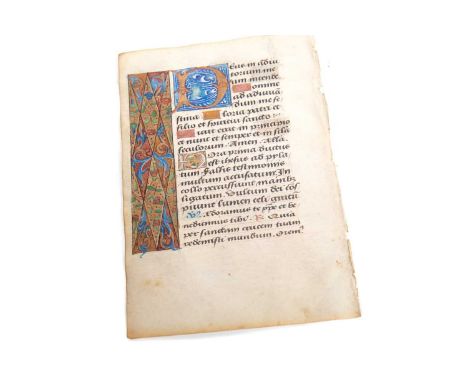 Eus in adiu
torium me
um intende
Domine
ad adiuvā
dum me fe
stina loria patri et
filio et spiritui sancto
icut erat in principio
et nunc et semper et in secula
seculorum Amen
ora prima ductus
est ihesus ad pyla
tum Falsis testimoniis
multum accusatum In
collo percussiunt manib
ligatum Vultum dei cos
piunt lumen celi
℣ Adoramus te et be
nedicimus tibi ℟ Quia
per sanctam crucem tuam
redemisti mundum Orem